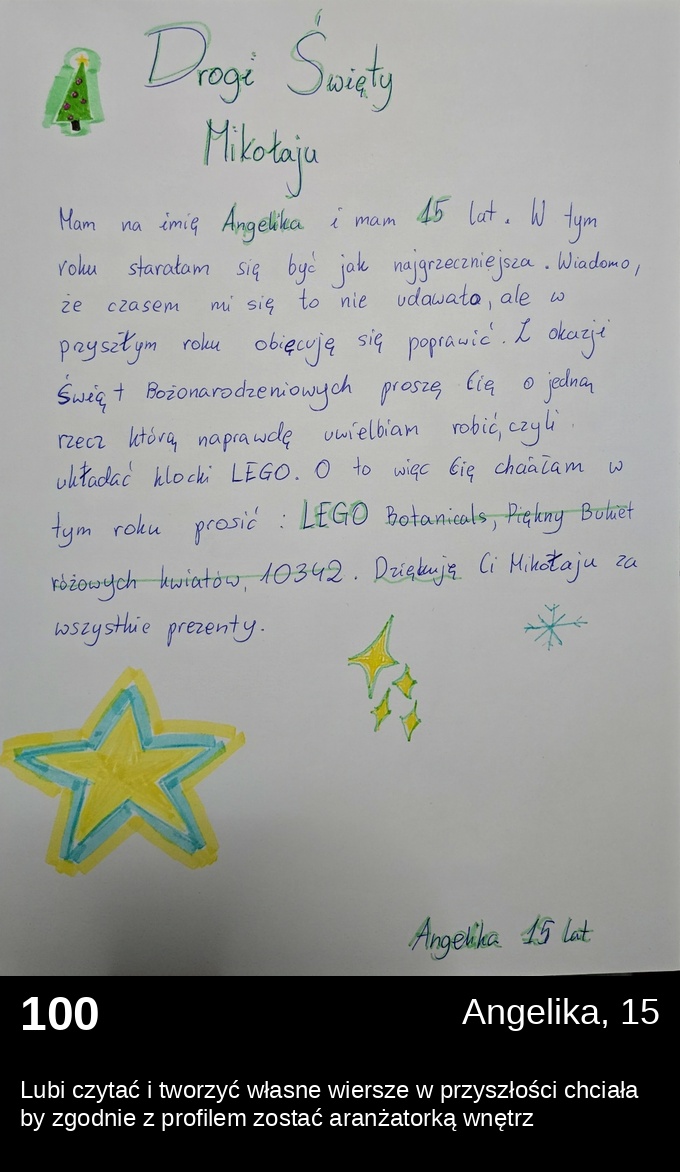 Drogi Święty
Mikołaju
Mam na imię Angelika i mam 15 lat. W tym
roku starałam się być jak najgrzeczniejsza. Wiadomo,
że czasem mi się to nie udawało, ale w
przyszłym roku obięcuję się poprawić. Z okazji
Świąt Bożonarodzeniowych proszę Cię o jedną
rzecz którą naprawdę uwielbiam robić, czyli
układać klocki LEGO. O to więc Cię chciałam w
tym roku prosić : LEGO Botanicals, Piękny Bukiet
różowych kwiatów, 10342. Dziękuję Ci Mikołaju za
wszystkie prezenty.
Angelika 15 lat
100
Angelika, 15
Lubi czytać i tworzyć własne wiersze w przyszłości chciała
by zgodnie z profilem zostać aranżatorką wnętrz